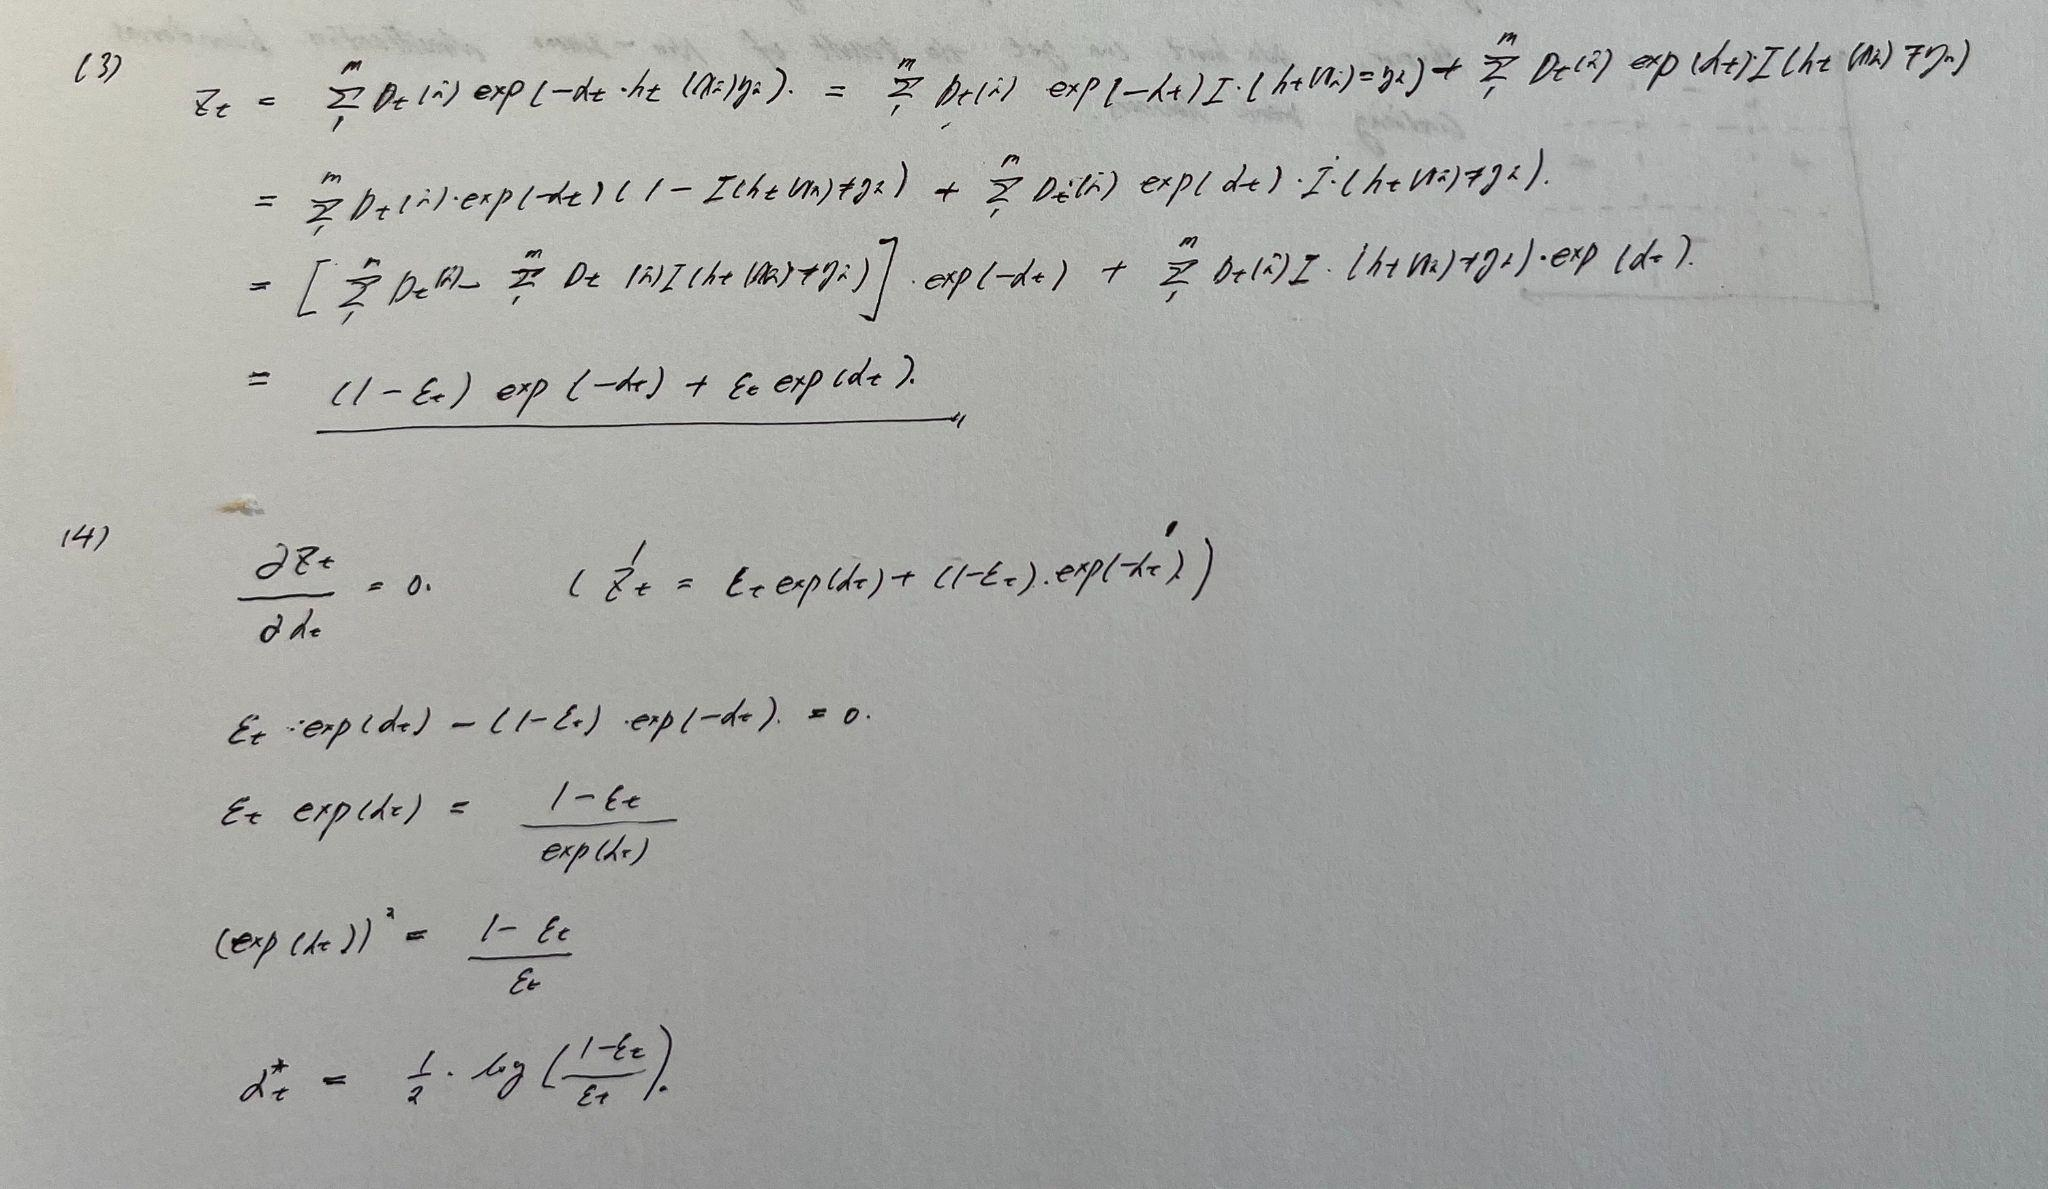 (3) Z_t = Σ_1^m D_t(i) exp(-α_t · h_t(x_i)y_i). = Σ_1^m D_t(i) exp(-α_t) I·(h_t(x_i)=y_i) + Σ_1^m D_t(i) exp(α_t)·I(h_t(x_i)≠y_i)
= Σ_1^m D_t(i)·exp(-α_t)(1 - I(h_t(x_i)≠y_i) + Σ_1^m D_t(i) exp(α_t)·I·(h_t(x_i)≠y_i).
= [Σ_1^m D_t(i) - Σ_1^m D_t(i)I(h_t(x_i)≠y_i)]·exp(-α_t) + Σ_1^m D_t(i)I·(h_t(x_i)≠y_i)·exp(α_t).
= (1-ε_t) exp(-α_t) + ε_t exp(α_t).
(4) ∂Z_t/∂α_t = 0. (Z_t = ε_t exp(α_t) + (1-ε_t)·exp(-α_t))
ε_t·exp(α_t) - (1-ε_t)·exp(-α_t). = 0.
ε_t exp(α_t) = (1-ε_t)/exp(α_t)
(exp(α_t))² = (1-ε_t)/ε_t
α_t* = 1/2 · log((1-ε_t)/ε_t).